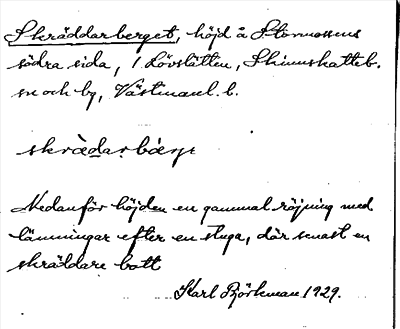 Skräddarberget, höjd å Stormossens
södra sida, 1 Lövslätten, Skinnskatteb.
sn och by, Västmanl. l.
skrädar bärje
Nedanför höjden en gammal röjning med
lämningar efter en stuga, där senast en
skräddare bott
Karl Björkman 1929.